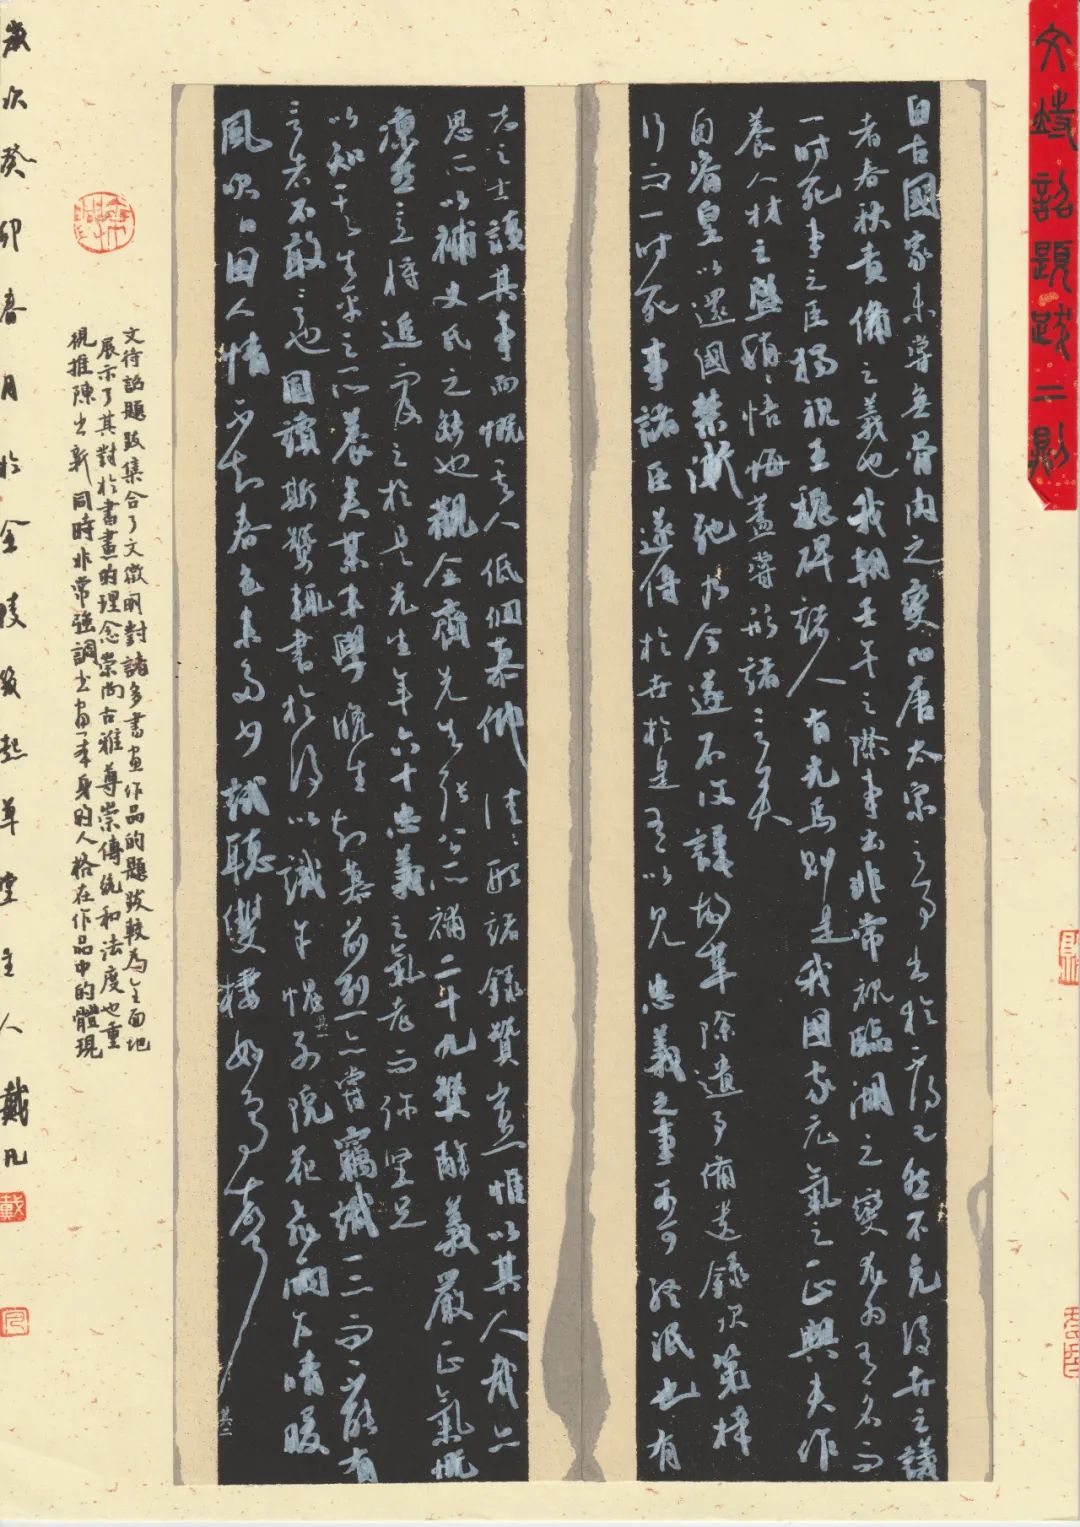 文待詔題跋二則
自古國家未嘗無骨肉之變而唐太宗之事出於不得已然不免得世之議
者春秋責備之義也我朝壬午之際事出非常視臨湖之變尤為有名而
一時死事之臣獨視王魏碑諸人有光焉則是我國家元氣之正與夫作
養人材之盛
自睿皇以還國禁漸弛乃今遂不復諱故革除遺事備遺錄次第梓
行而一時死事諸臣遂得於世於是有以見忠義之事不可終泯也有
志之士讀其事而慨其人低佪慕仰形諸錄贊豈惟以其人哉亦
思所以補史氏之缺也觀全齋先生所補二十九贊辭義嚴正氣概
凜然立將追而及之於是先生年六十忠義之氣老而彌堅足
以知其生平之所養矣某末學晚生知慕前烈亦嘗竊識一二而不能有
言者不敢言也因讀斯贊輒書於後以識午愧 其一
院花敲雨乍晴暖
風吹日困人情不知春色來多少試聽雙棲好鳥聲 其二
文待詔題跋集合了文徵明對諸多書畫作品的題跋較為全面地
展示了其對於書畫的理念崇尚古雅尊崇傳統和法度也重
視推陳出新同時非常強調書畫本身的人格在作品中的體現
歲次癸卯春月於金陵致起草堂主人戴凡
戴